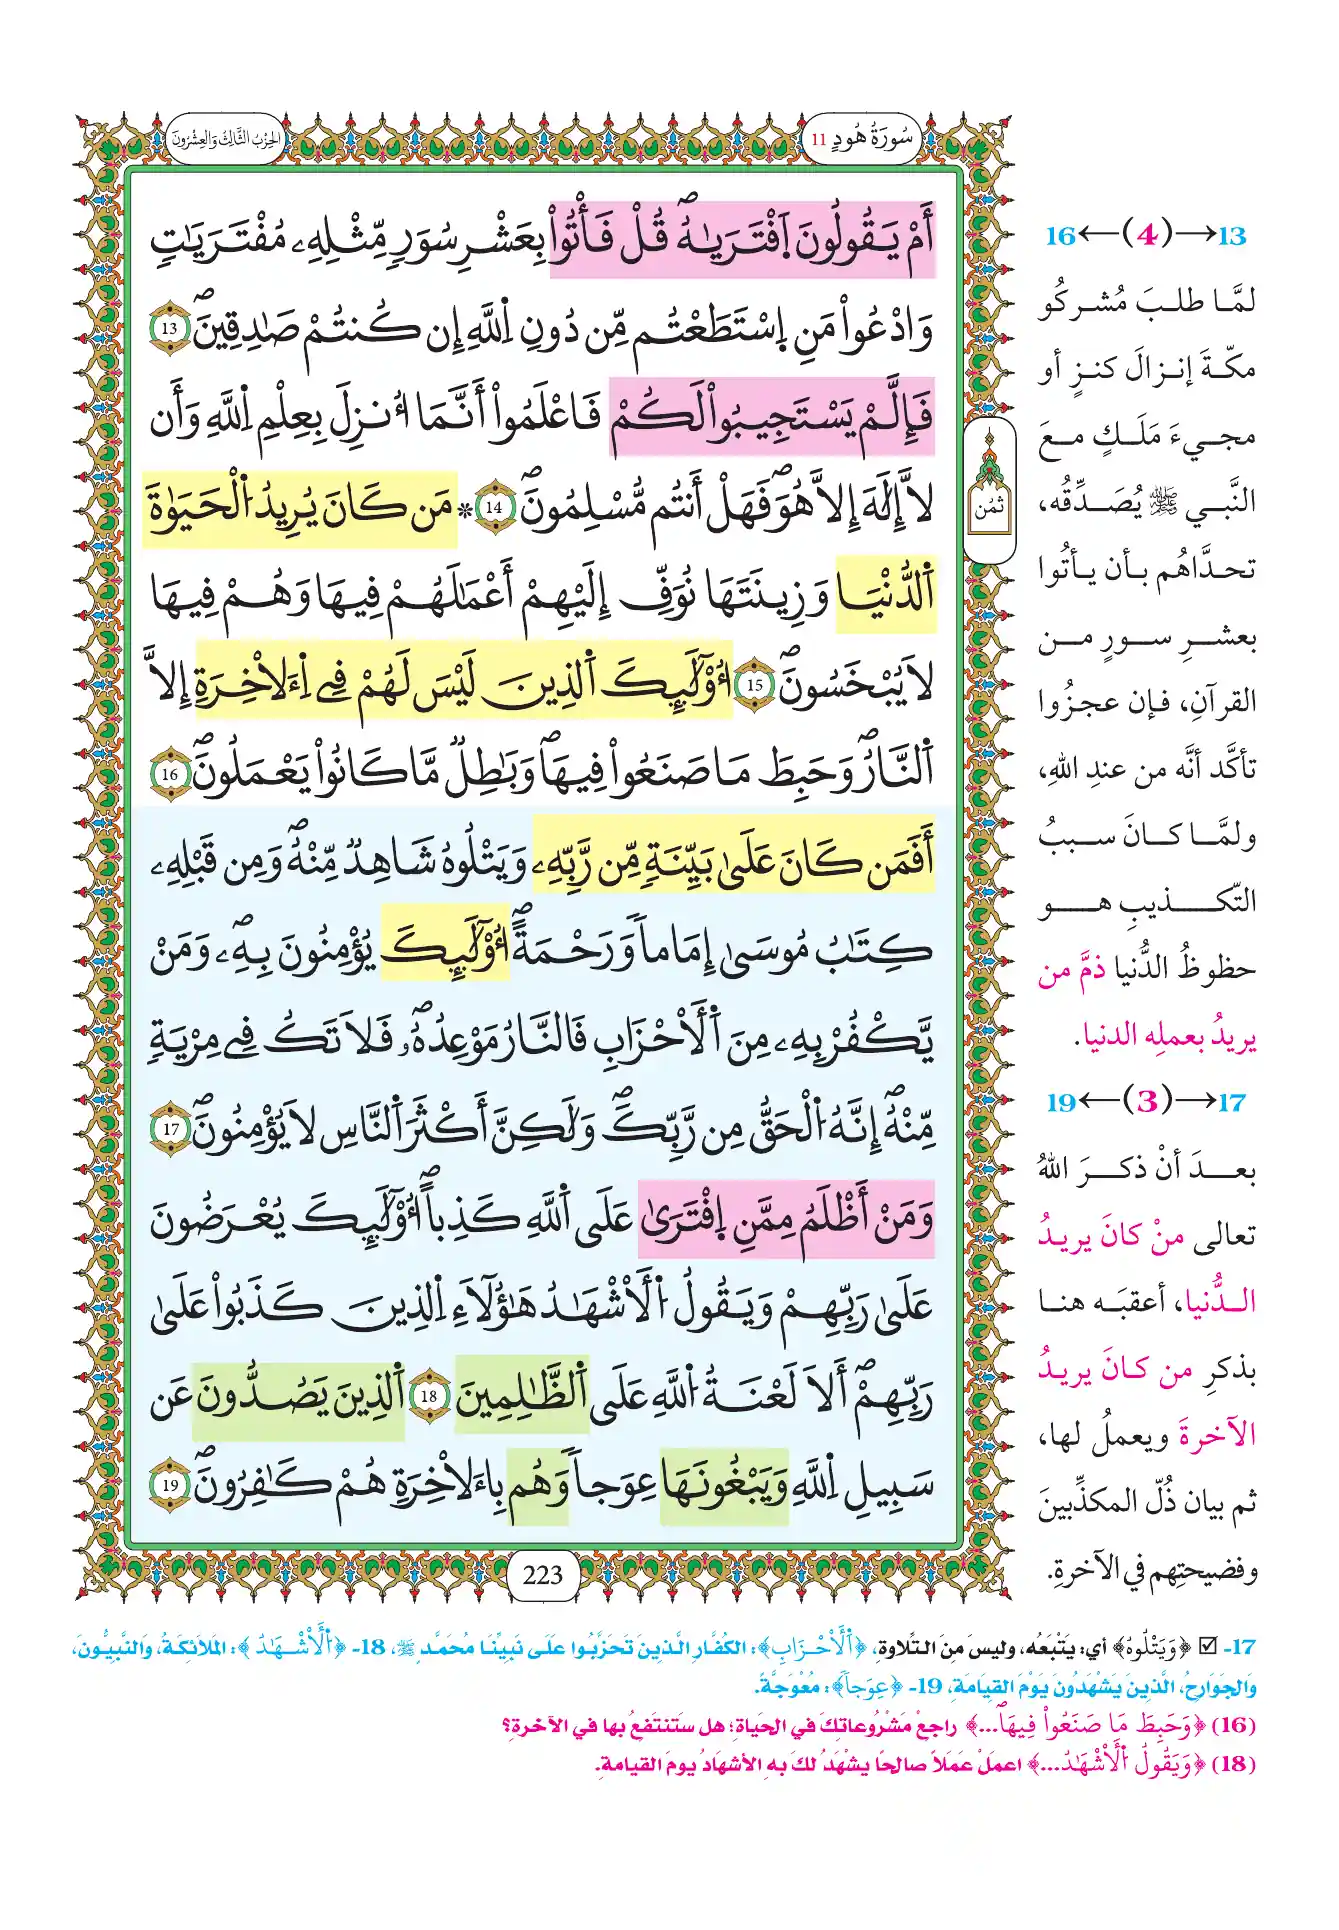 سُورَةُ هُودٍ 11
الحِزْبُ الثَّالِثُ وَالعِشْرُونَ
أَمْ يَقُولُونَ اَ۪فْتَرَيٰهُۖ قُلْ فَأْتُواْ بِعَشْرِ سُوَرٖ مِّثْلِهِۦ مُفْتَرَيَٰتٖ
وَادْعُواْ مَنِ اِ۪سْتَطَعْتُم مِّن دُونِ اِ۬للَّهِ إِن كُنتُمْ صَٰدِقِينَۖ 13
فَإِلَّمْ يَسْتَجِيبُواْ لَكُمْ فَاعْلَمُواْ أَنَّمَا أُنزِلَ بِعِلْمِ اِ۬للَّهِ وَأَن
لَّا إِلَٰهَ إِلَّا هُوَۖ فَهَلْ أَنتُم مُّسْلِمُونَۖ 14 * مَن كَانَ يُرِيدُ اُ۬لْحَيَوٰةَ
اَ۬لدُّنْيَا وَزِينَتَهَا نُوَفِّ إِلَيْهِمْ أَعْمَٰلَهُمْ فِيهَا وَهُمْ فِيهَا
لَا يُبْخَسُونَۖ 15 أُوْلَٰٓئِكَ اَ۬لذِينَ لَيْسَ لَهُمْ فِے اِ۬لَاخِرَةِ إِلَّا
اَ۬لنَّارُۖ وَحَبِطَ مَا صَنَعُواْ فِيهَاۖ وَبَٰطِلٞ مَّا كَانُواْ يَعْمَلُونَۖ 16
أَفَمَن كَانَ عَلَىٰ بَيِّنَةٖ مِّن رَّبِّهِۦ وَيَتْلُوهُ شَاهِدٞ مِّنْهُۖ وَمِن قَبْلِهِۦ
كِتَٰبُ مُوسَىٰ إِمَاماٗ وَرَحْمَةًۖ أُوْلَٰٓئِكَ يُؤْمِنُونَ بِهِۦۖ وَمَنْ
يَّكْفُرْ بِهِۦ مِنَ اَ۬لْأَحْزَابِ فَالنَّارُ مَوْعِدُهُۥۖ فَلَا تَكُ فِے مِرْيَةٖ
مِّنْهُۖ إِنَّهُ اُ۬لْحَقُّ مِن رَّبِّكَۖ وَلَٰكِنَّ أَكْثَرَ اَ۬لنَّاسِ لَا يُؤْمِنُونَۖ 17
وَمَنْ أَظْلَمُ مِمَّنِ اِ۪فْتَرَىٰ عَلَى اَ۬للَّهِ كَذِباًۖ أُوْلَٰٓئِكَ يُعْرَضُونَ
عَلَىٰ رَبِّهِمْ وَيَقُولُ اُ۬لْأَشْهَٰدُ هَٰؤُلَآءِ اِ۬لذِينَ كَذَبُواْ عَلَىٰ
رَبِّهِمْۖ أَلَا لَعْنَةُ اُ۬للَّهِ عَلَى اَ۬لظَّٰلِمِينَ 18 اَ۬لذِينَ يَصُدُّونَ عَن
سَبِيلِ اِ۬للَّهِ وَيَبْغُونَهَا عِوَجاٗ وَهُم بِالَاخِرَةِ هُمْ كَٰفِرُونَۖ 19
ثمُن
223
13→(4)←16
لمَّا طلبَ مُشركُو
مكّةَ إنزالَ كنزٍ أو
مجيءَ مَلَكٍ معَ
النَّبي ﷺ يُصَدِّقُه،
تحدَّاهُم بأن يأتُوا
بعشرِ سورٍ من
القرآنِ، فإن عجزُوا
تأكَّد أنَّه من عندِ اللهِ،
ولمَّا كانَ سببُ
التّكذيبِ هو
حظوظُ الدُّنيا ذمَّ من
يريدُ بعملِه الدنيا.
17→(3)←19
بعدَ أنْ ذكرَ اللهُ
تعالى منْ كانَ يريدُ
الدُّنيا، أعقبَه هنا
بذكرِ من كانَ يريدُ
الآخرةَ ويعملُ لها،
ثم بيان ذُلّ المكذِّبينَ
وفضيحتِهم في الآخرةِ.
17- ☑ ﴿وَيَتْلُوهُ﴾ أي: يَتْبَعُه، وليسَ مِنَ التِّلاوةِ، ﴿اَ۬لْأَحْزَابِ﴾: الكُفَّارِ الَّذِينَ تَحَزَّبُوا عَلَى نَبِيِّنَا مُحَمَّدٍ ﷺ، 18- ﴿اُ۬لْأَشْهَٰدُ﴾: المَلَائِكَةُ، وَالنَّبِيُّونَ،
وَالجَوَارِحُ، الَّذِينَ يَشْهَدُونَ يَوْمَ القِيَامَةِ، 19- ﴿عِوَجاٗ﴾: مُعْوَجَّةً.
(16) ﴿وَحَبِطَ مَا صَنَعُواْ فِيهَاۖ...﴾ راجعْ مَشْرُوعاتِكَ في الحَياةِ؛ هل ستَنتَفعُ بها في الآخرةِ؟
(18) ﴿وَيَقُولُ اُ۬لْأَشْهَٰدُ...﴾ اعملْ عَمَلاً صالحًا يشْهَدُ لكَ به الأشهادُ يومَ القيامةِ.